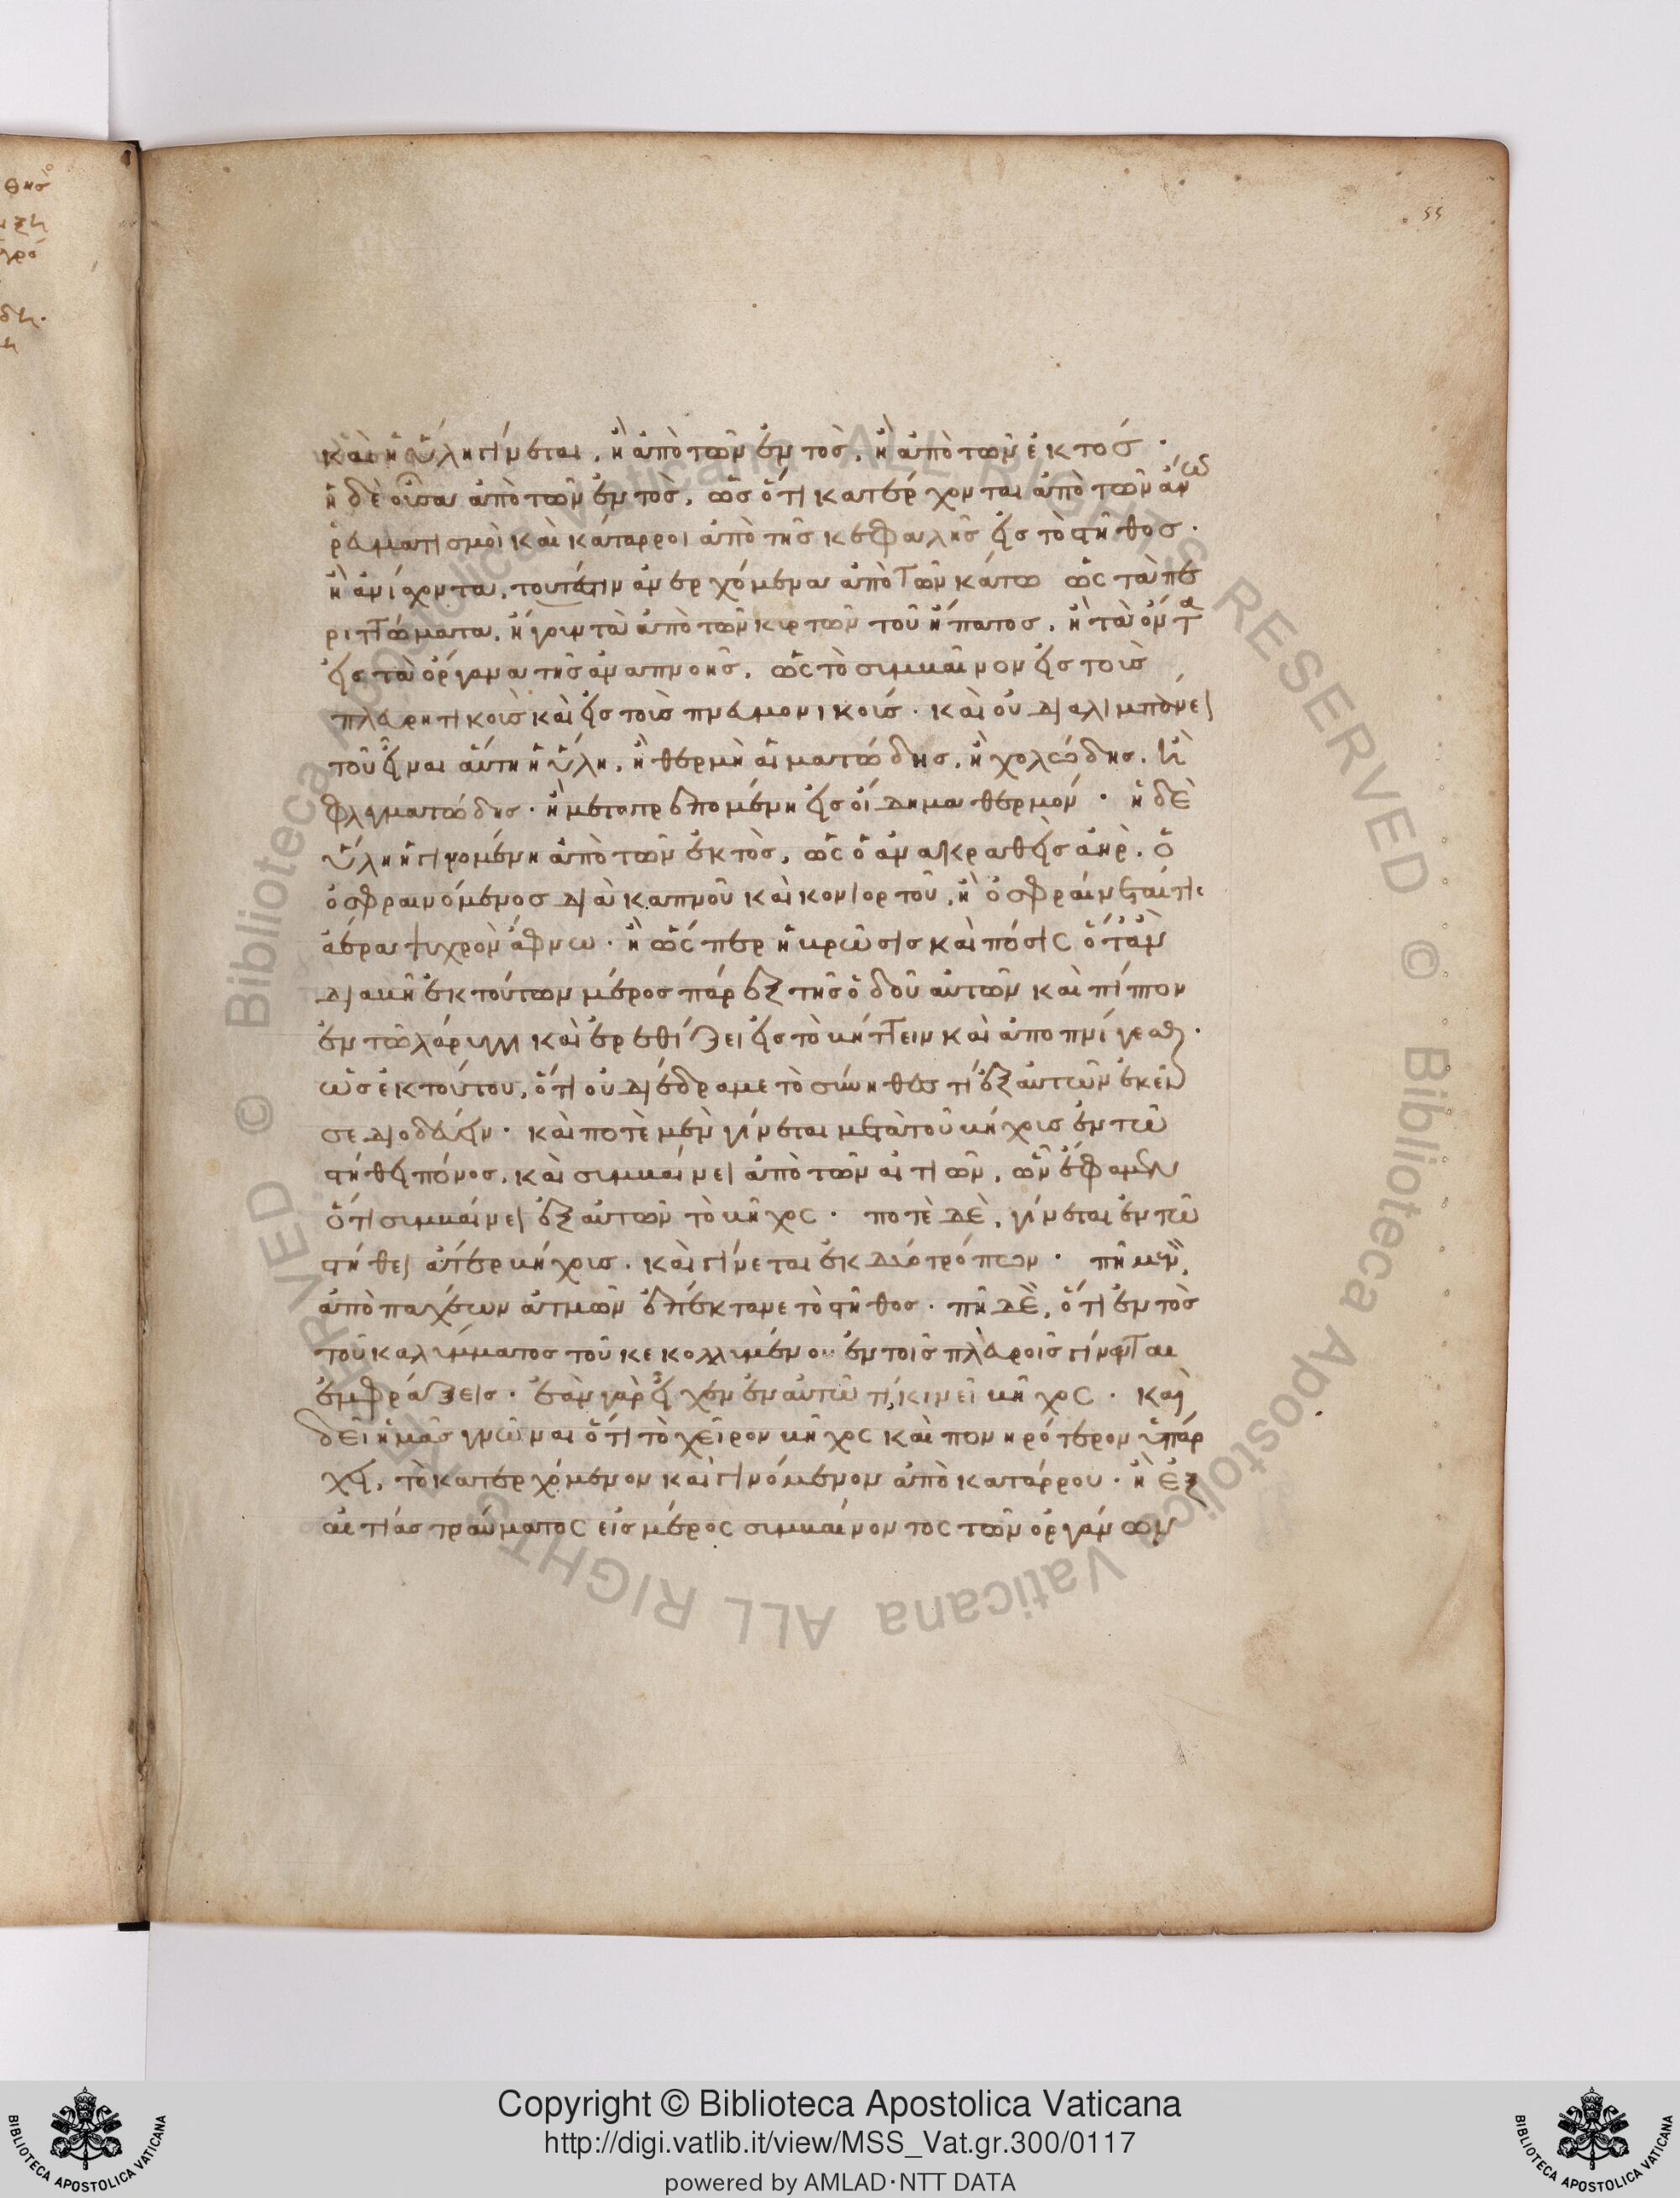 55
καὶ ἡ ὕλη γίνεται, ἢ ἀπὸ τῶν ἐντὸς, ἢ ἀπὸ τῶν ἐκτός.
ἡ δὲ οὖσα ἀπὸ τῶν ἐντὸς, ὡς ὅτι κατέρχονται ἀπὸ τῶν ἄνω
ῥευματισμοὶ καὶ κάταρροι ἀπὸ τῆς κεφαλῆς εἰς τὸ στῆθος.
ἢ ἀνίσχονται, τουτέστιν ἀνερχόμενα ἀπὸ τῶν κάτω ὡς τὰ πε
ριττώματα, ἤγουν τὰ ἀπὸ τῶν κυρτῶν τοῦ ἥπατος, ἢ τὰ ὄντα
εἰς τὰ ὄργανα τῆς ἀναπνοῆς, ὡς τὸ συμβαῖνον εἰς τοὺς
πλευρητικοὺς καὶ εἰς τοὺς πνευμονικούς. καὶ οὐ διαλιμπάνει
τοῦ εἶναι αὕτη ἡ ὕλη, ἢ θερμὴ αἱματώδης, ἢ χολώδης, ἢ
φλεγματώδης. ἢ μετατρεπομένη εἰς οἴδημα θερμόν. ἡ δὲ
ὕλη ἡ γινομένη ἀπὸ τῶν ἐκτὸς, ὡς ὁ ἀνακραθεὶς ἀὴρ. ὁ
ὀσφραινόμενος διὰ καπνοῦ καὶ κονιορτοῦ, ἢ ὀσφραίνεταί τις
ἀέρα ψυχρὸν ἄφνω. ἢ ὥσπερ ἡ βρῶσις καὶ πόσις ὅταν
διαβῇ ἐκ τούτων μέρος παρὲξ τῆς ὁδοῦ αὐτῶν καὶ πίπτον
ἐν τῷ λάρυγγι καὶ ἐρεθίζει εἰς τὸ βήττειν καὶ ἀποπνίγεσθαι.
ὡς ἐκ τούτου, ὅτι οὐ διέδραμε τὸ σύνηθες τὶ ἐξ αὐτῶν ἐκεῖ
σε διοδεύειν. καὶ ποτὲ μὲν γίνεται μετὰ τοῦ βήχους ἐν τῷ
στήθει πόνος, καὶ συμβαίνει ἀπὸ τῶν αἰτιῶν, ὧν ἔφαμεν
ὅτι συμβαίνει ἐξ αὐτῶν τὸ βῆχος. ποτὲ δὲ, γίνεται ἐν τῷ
στήθει ἄτερ βήχους. καὶ γίνεται ἐκ δύο τρόπων. πῆ μὲν,
ἀπὸ παχέων ἀτμῶν ἐπέκτανε τὸ στῆθος. πῆ δὲ, ὅτι ἐντὸς
τοῦ καλύμματος τοῦ κεκολλημένου ἐν τοῖς πλευροῖς γίνονται
ἐμφράξεις. ἐὰν γὰρ εἶχεν ἐν αὐτῷ τι, κινεῖ βῆχος. καὶ
δεῖ ἡμᾶς γνῶναι ὅτι τὸ χεῖρον βῆχος καὶ πονηρότερον ὑπάρ
χει, τὸ κατερχόμενον καὶ γινόμενον ἀπὸ κατάρρου. ἢ ἐξ
αἰτίας τραύματος εἰς μέρος συμβαίνοντος τῶν ὀργάνων
Copyright © Biblioteca Apostolica Vaticana
http://digi.vatlib.it/view/MSS_Vat.gr.300/0117
powered by AMLAD·NTT DATA
BIBLIOTECA APOSTOLICA VATICANA
BIBLIOTECA APOSTOLICA VATICANA